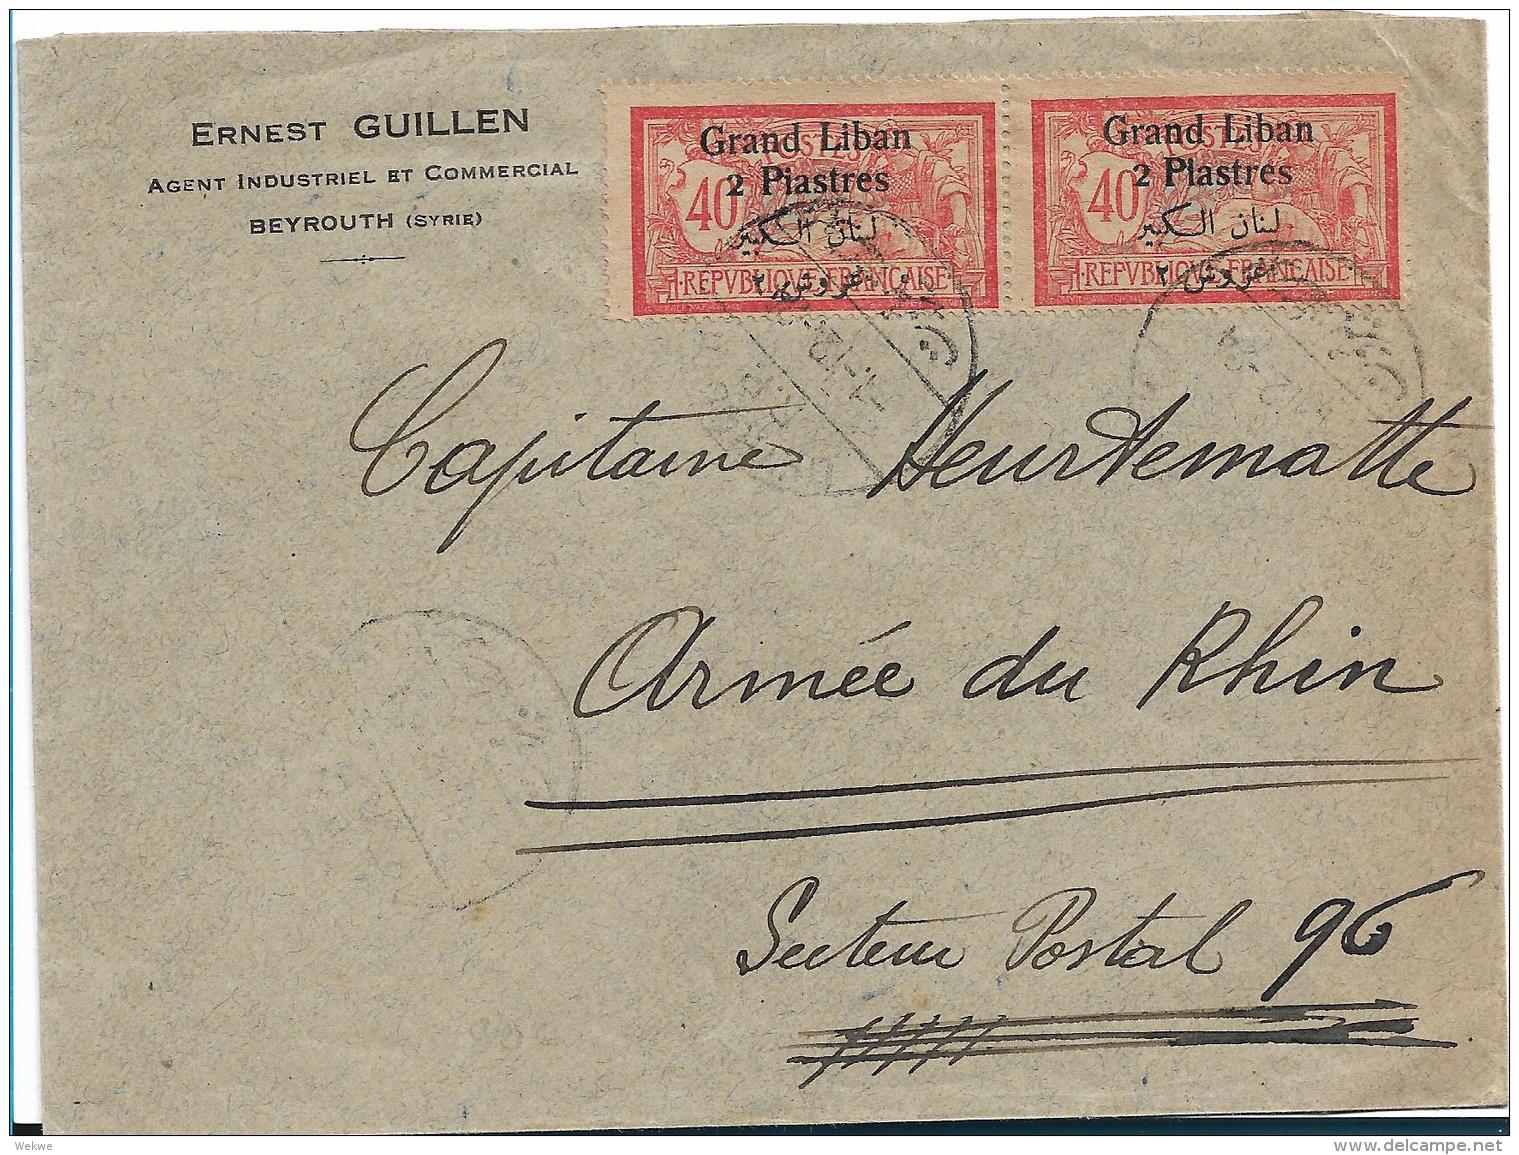 ERNEST GUILLEN
AGENT INDUSTRIEL ET COMMERCIAL
BEYROUTH (SYRIE)
POSTES
Grand Liban
2 Piastres
40
لبنان الكبير
غروش ٢
·REPVBLIQVE·FRANÇAISE·
POSTES
Grand Liban
2 Piastres
40
لبنان الكبير
غروش ٢
·REPVBLIQVE·FRANÇAISE·
Capitaine Heurtematte
Armée du Rhin
Secteur Postal 96
Wekwe
delcampe.net